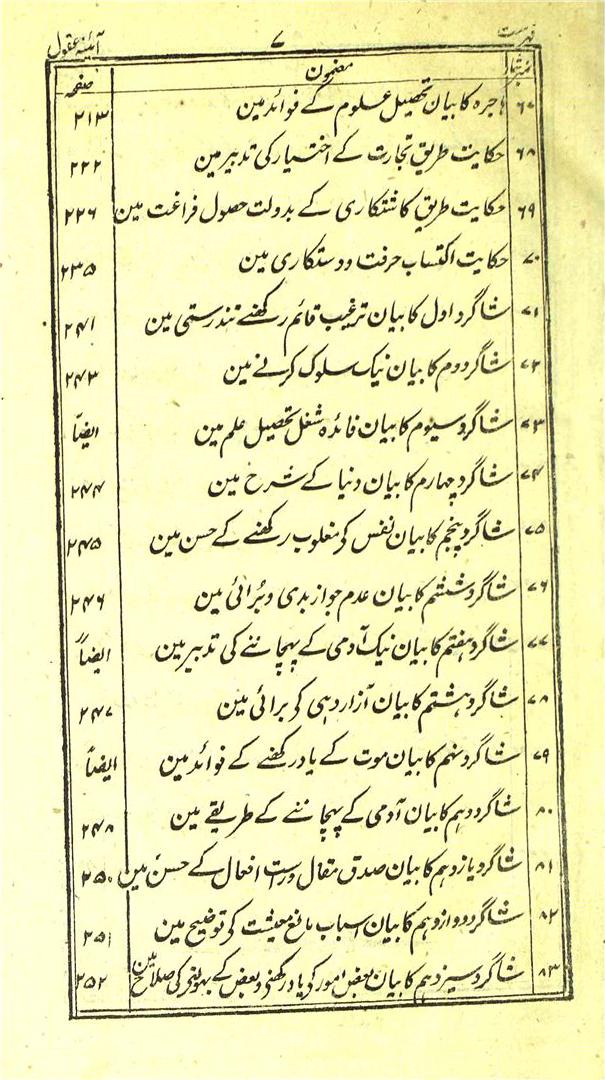 فہرست ۷ آئینۂ عقول
نمبر شمار مضمون صفحہ
۶۷ ہاجرہ کا بیان تحصیل علوم کے فوائد مین ۲۱۳
۶۸ حکایت طریق تجارت کے اختیار کی تدبیر مین ۲۲۲
۶۹ حکایت طریق کاشتکاری کے بدولت حصول فراغت مین ۲۲۶
۷۰ حکایت اکتساب حرفت و دستکاری مین ۲۳۵
۷۱ شاگرد اول کا بیان ترغیب قائم رکھنے تندرستی مین ۲۴۱
۷۲ شاگرد دوم کا بیان نیک سلوک کرنے مین ۲۴۳
۷۳ شاگرد سیوم کا بیان فائدہ شغل تحصیل علم مین ایضاً
۷۴ شاگرد چہارم کا بیان دنیا کے شرح مین ۲۴۴
۷۵ شاگرد پنجم کا بیان نفس کو مغلوب رکھنے کے حسن مین ۲۴۵
۷۶ شاگرد ششم کا بیان عدم جواز بدی و برائی مین ۲۴۶
۷۷ شاگرد ہفتم کا بیان نیک آدمی کے پہچاننے کی تدبیر مین ایضاً
۷۸ شاگرد ہشتم کا بیان آزار دہی کو برائی مین ۲۴۷
۷۹ شاگرد نہم کا بیان موت کے یاد رکھنے کے فوائد مین ایضاً
۸۰ شاگرد دہم کا بیان آدمی کے پہچاننے کے طریقے مین ۲۴۸
۸۱ شاگرد یازدہم کا بیان صدق مقال و راست افعال کے حسن مین ۲۵۰
۸۲ شاگرد دوازدہم کا بیان اسباب مانع معیشت کو توضیح مین ۲۵۱
۸۳ شاگرد سیزدہم کا بیان بعض امور کو یاد رکھنے و بعض کے بھولنے کی صلاح مین ۲۵۲